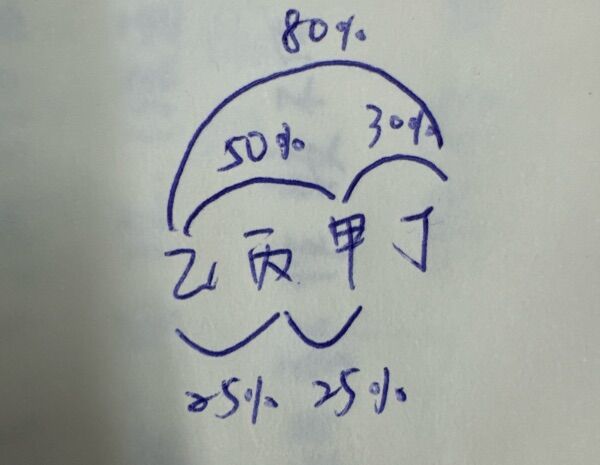 80%
50% 30%
乙 丙 甲 丁
25% 25%